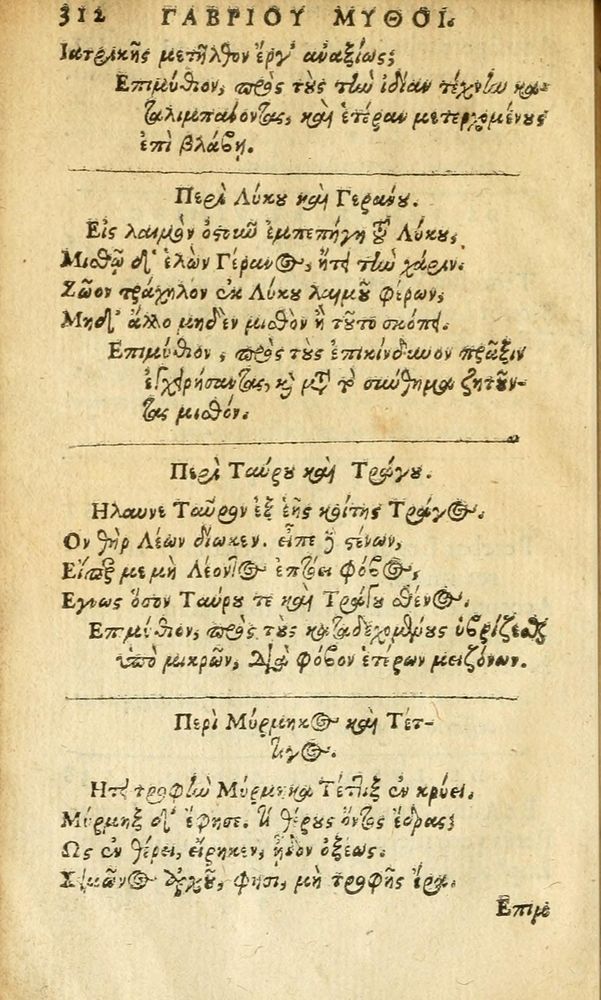 312 ΓΑΒΡΙΟΥ ΜΥΘΟΙ.
Ιατρικῆς μετῆλθον ἔργ' ἀναξίως;
Επιμύθιον, πρὸς τοὺς τὴν ἰδίαν τέχνην κα-
ταλιμπάνοντας, καὶ ἑτέραν μετερχομένους
ἐπὶ βλάβῃ.
Περὶ Λύκου καὶ Γεράνου.
Εἰς λαιμὸν ὀστοῦν ἐμπεπήγη τοῦ Λύκου,
Μισθῷ δ' ἑλὼν Γέρανος, ἤτει τὴν χάριν.
Σῶον τράχηλον ἐκ Λύκου λαιμοῦ φέρων,
Μηδ' ἄλλο μηδὲν μισθὸν ἢ τοῦτο σκόπει.
Επιμύθιον, πρὸς τοὺς ἐπικίνδυνον πρᾶξιν
ἐγχειρήσαντας, καὶ μετὰ τὸ σύνθημα ζητοῦν-
τας μισθόν.
Περὶ Ταύρου καὶ Τράγου.
Ηλαυνε Ταῦρον ἐξ ἑῆς κοίτης Τράγος.
Ον θὴρ Λέων δίωκεν. εἶπε δὲ στένων,
Εἴπερ με μὴ Λέοντος ἐπτόει φόβος,
Εγνως ὅσον Ταύρου τε καὶ Τράγου σθένος.
Επιμύθιον, πρὸς τοὺς καταδεχομένους ὑβρίζεσθαι
ὑπὸ μικρῶν, διὰ φόβον ἑτέρων μειζόνων.
Περὶ Μύρμηκος καὶ Τέτ-
τιγος.
Ητει τροφὴν Μύρμηκα Τέττιξ ἐν κρύει.
Μύρμηξ δ' ἔφησε. τί θέρους ὄντος ἔδρας;
Ως ἐν θέρει, εἴρηκεν, ᾖδον ὀξέως.
Χειμῶνος ὀρχοῦ, φησι, μὴ τροφῆς ἔρα.
Επιμύ